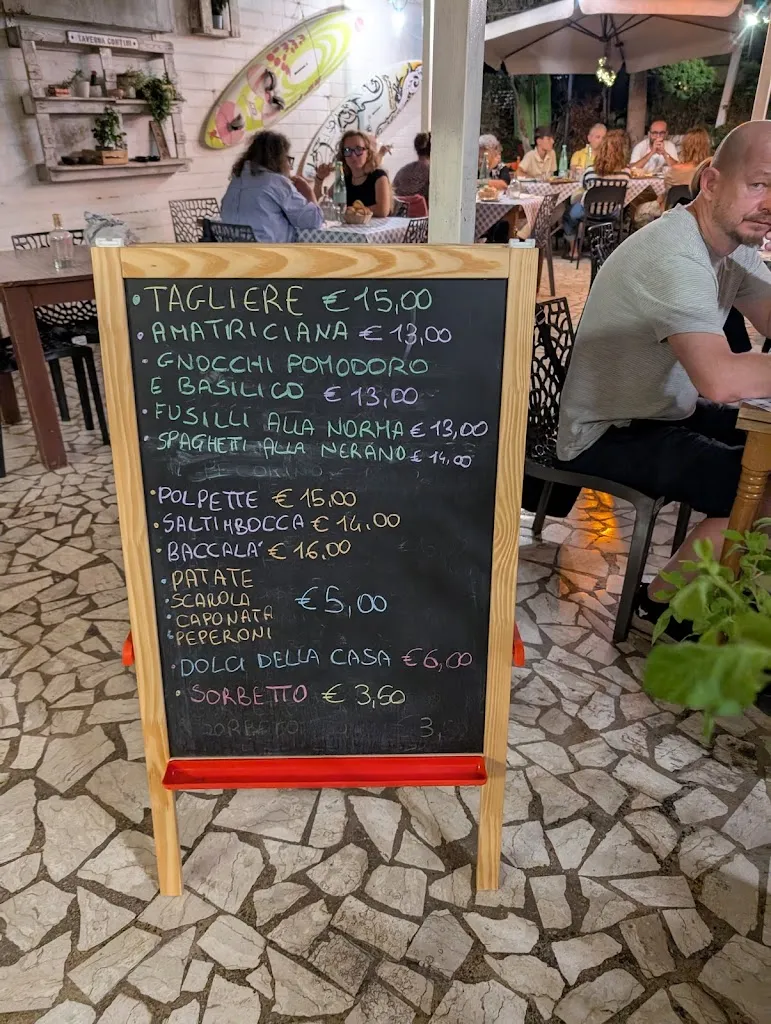 TAVERNA CONTINI
• TAGLIERE € 15,00
• AMATRICIANA € 13,00
• GNOCCHI POMODORO
E BASILICO € 13,00
• FUSILLI ALLA NORMA € 13,00
• SPAGHETI ALLA NERANO € 14,00
• POLPETTE € 15,00
• SALTIMBOCCA € 14,00
• BACCALA' € 16,00
• PATATE
• SCAROLA € 5,00
• CAPONATA
• PEPERONI
• DOLCI DELLA CASA € 6,00
• SORBETTO € 3,50
SORBETTO 3,